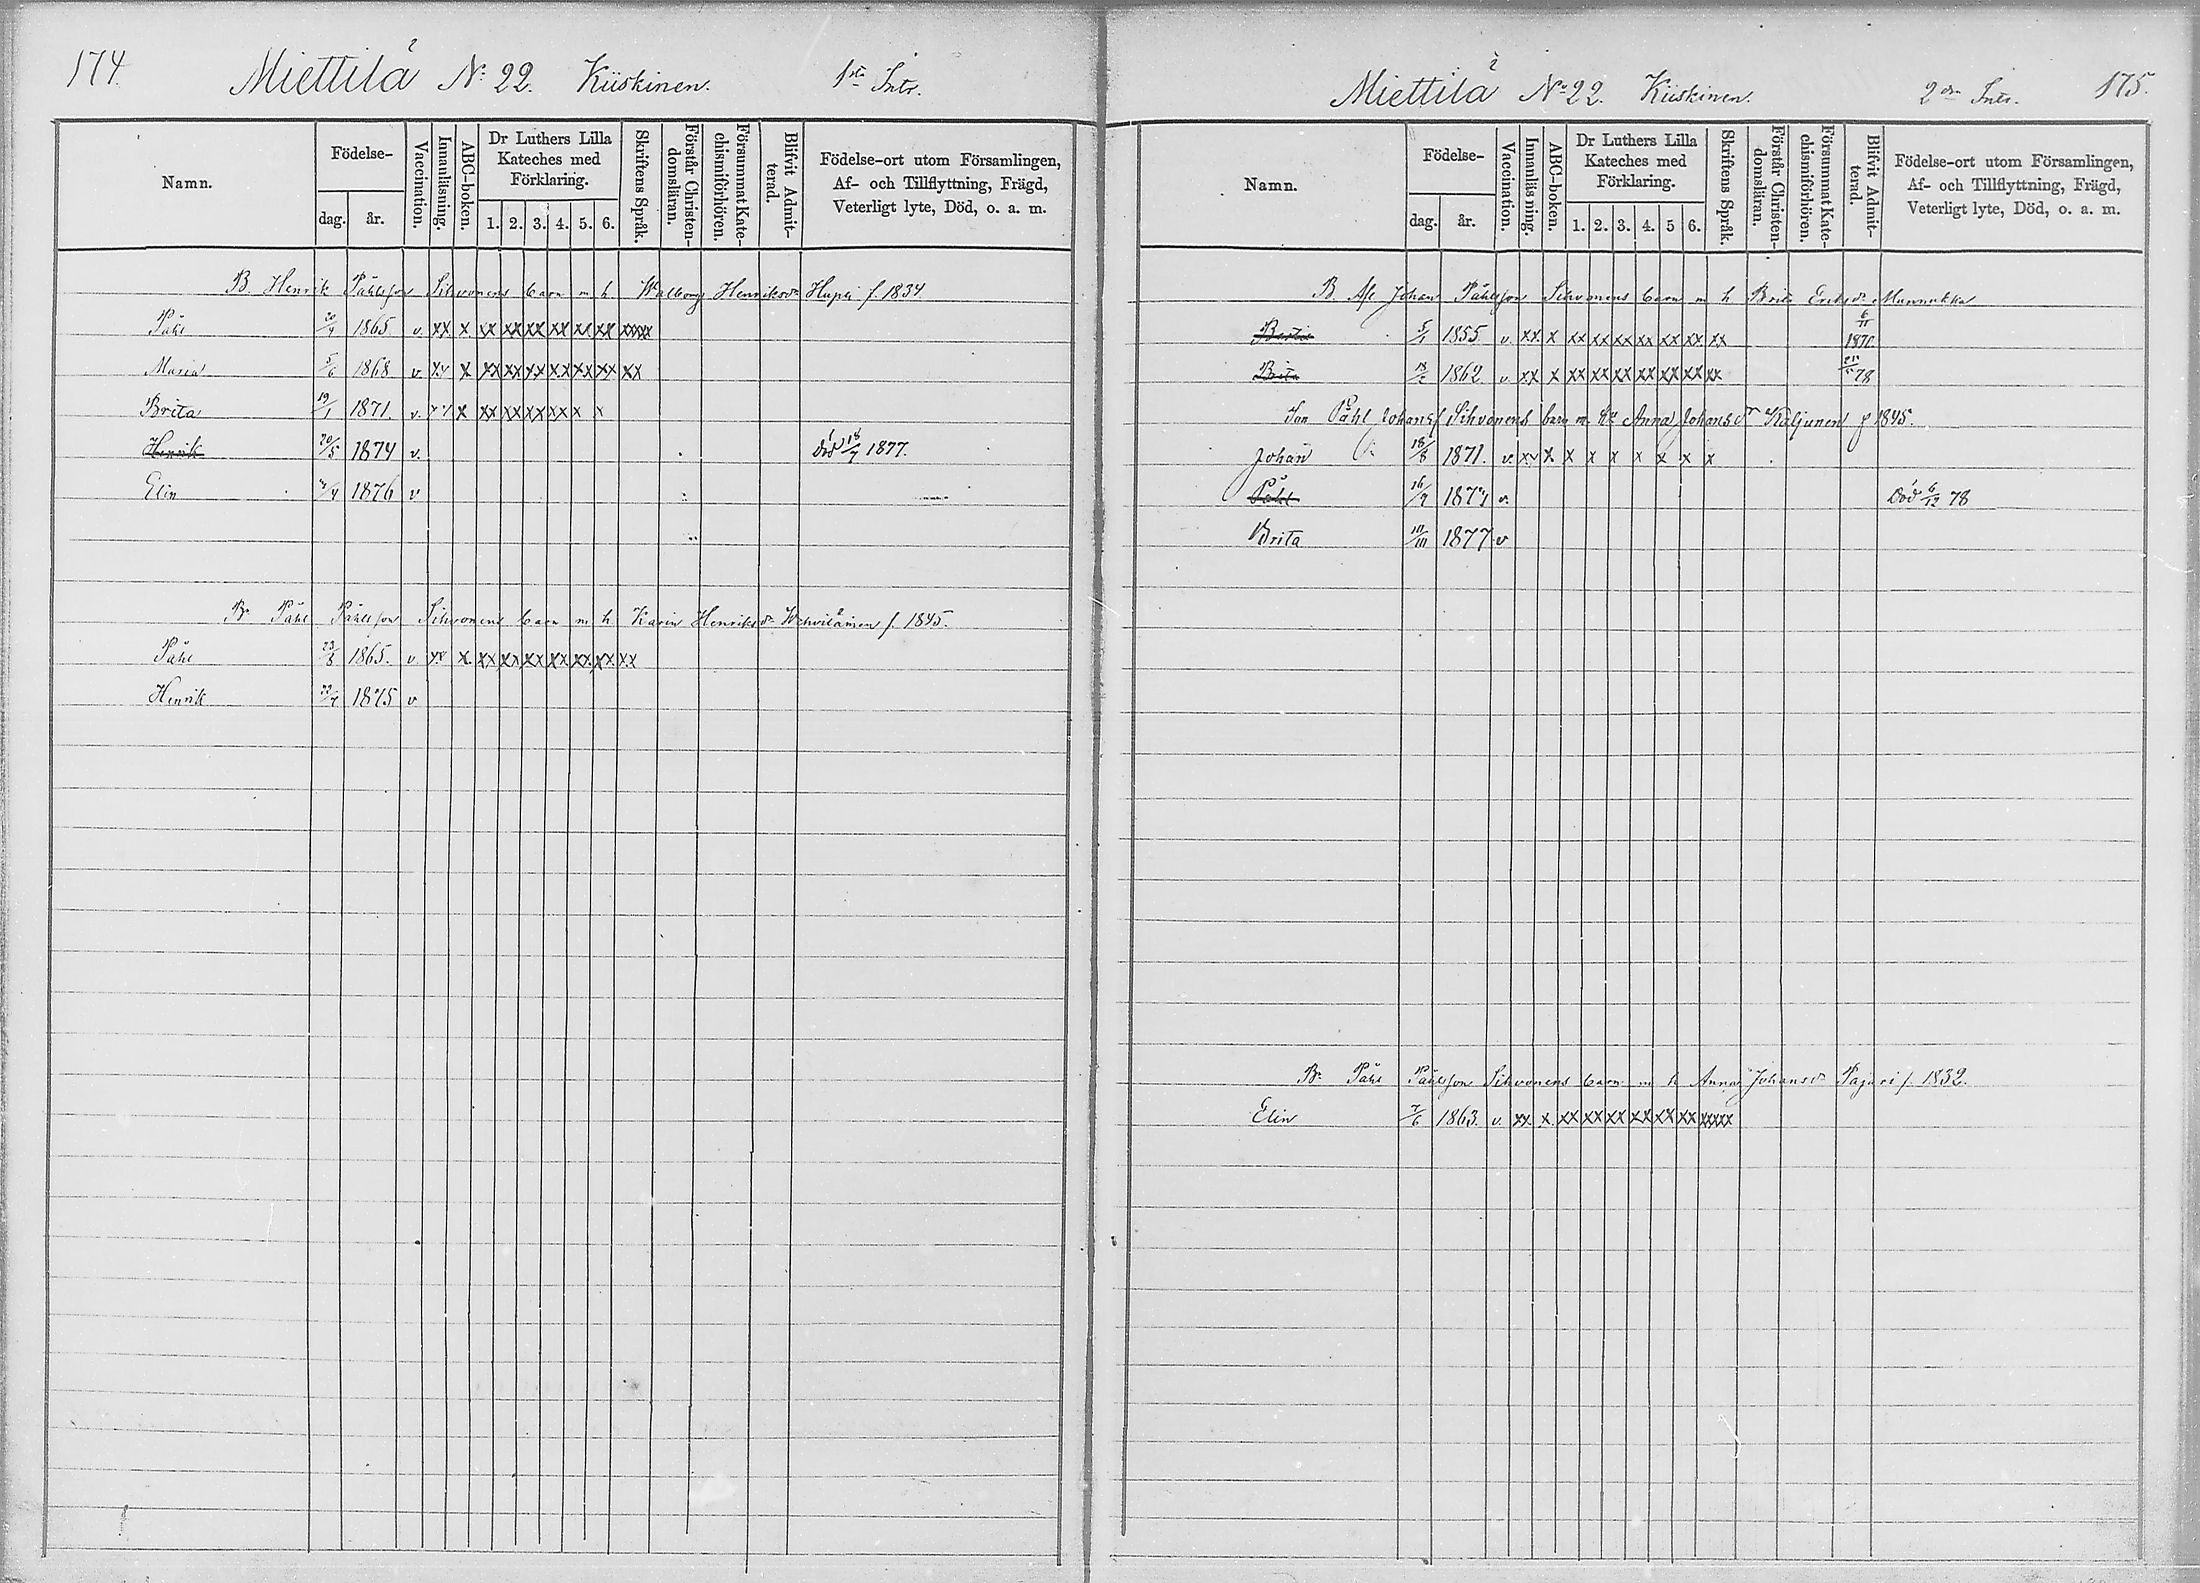 174. Miettilä No 22. Kiiskinen. 1sta Intr.
Namn. Födelse- dag. år. Vaccination. Innanläsning. ABC-boken. Dr Luthers Lilla Kateches med Förklaring. 1. 2. 3. 4. 5. 6. Skriftens Språk. Förstår Christendomsläran. Försummat Katechismiförhören. Blifvit Admitterad. Födelse-ort utom Församlingen, Af- och Tillflyttning, Frägd, Veterligt lyte, Död, o. a. m.
B. Henrik Påhlsson Sihvonens barn m h Walborg Henriksdr Hupli f. 1834
Påhl 20/4 1865 v. xx x. xx xx xx xx xx xx xxxxx
Maria 5/6 1868 v. xx x. xx xx xx xx xx xx xx
Brita 19/1 1871. v. x xx xx xx xx x x
Henrik 20/5 1874 v. död 1877.
Elin 1876 v
Br Påhl Påhlsson Sihvonens barn m h Karin Henriksdr f. 1845.
Påhl 23/8 1865. v. xx x. xx xx xx xx xx. xx xx
Henrik 1875 v
Miettilä No 22. Kiiskinen. 2dra Intr. 175.
Namn. Födelse- dag. år. Vaccination. Innanläsning. ABC-boken. Dr Luthers Lilla Kateches med Förklaring. 1. 2. 3. 4. 5 6. Skriftens Språk. Förstår Christendomsläran. Försummat Katechismiförhören. Blifvit Admitterad. Födelse-ort utom Församlingen, Af- och Tillflyttning, Frägd, Veterligt lyte, Död, o. a. m.
B. Afl Johan Påhlsson Sihvonens barn m h Brita Eriksdr Munnukka
5/1 1855 v. xx. x xx xx xx xx xx xx. xx 6/11
Brita 1862 v. xx x xx xx xx xx xx xx xx 78
Son Påhl Johanss Sihvonens barn m hu Anna Johansdr Kaljunen f 1845.
Johan 18/8 1871. v. xx x. x x x x x x x
Påhl 16/9 1874 v. Död 6/12 78
Brita 1877 v
Br Påhl Påhlsson Sihvonens barn m h Anna Johansdr Pajari f. 1832.
Elin 7/6 1863. v. xx. x. xx xx xx xx xx xx xxxxx